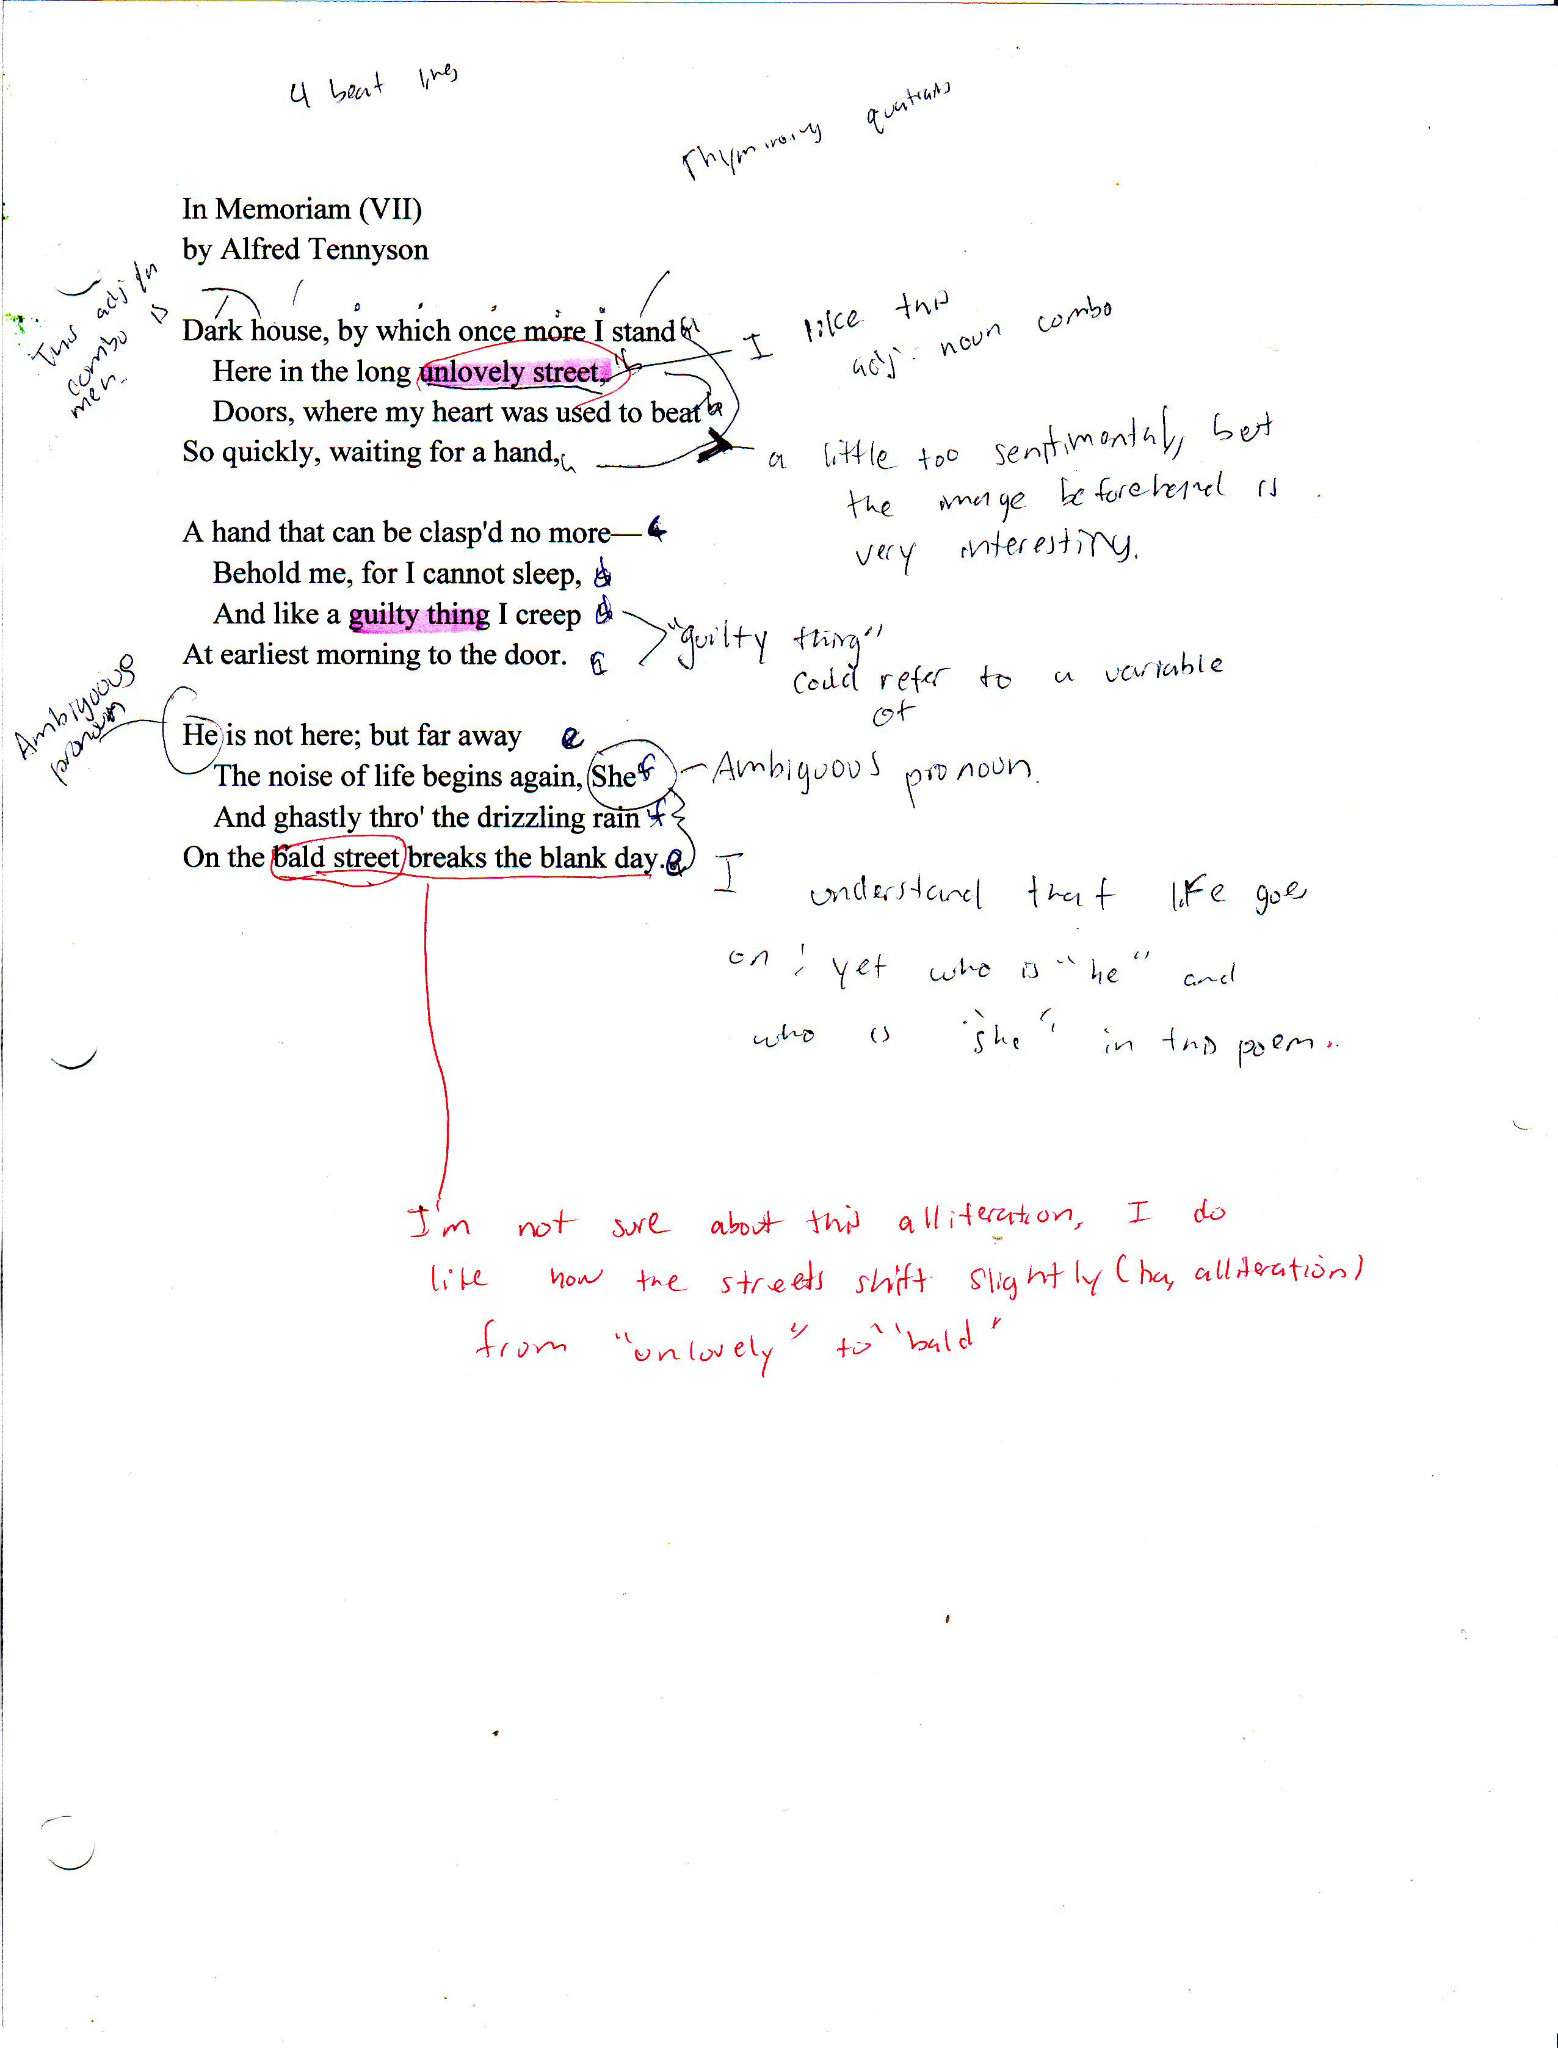 4 beat lines
Rhyming quatrains
In Memoriam (VII)
by Alfred Tennyson
This adj/n
combo is
meh.
Dark house, by which once more I stand a
Here in the long unlovely street, b
Doors, where my heart was used to beat b
So quickly, waiting for a hand, a
I like this
adj. noun combo
a little too sentimental, bet
the image beforehand is
very interesting.
A hand that can be clasp'd no more— c
Behold me, for I cannot sleep, d
And like a guilty thing I creep d
At earliest morning to the door. c
"guilty thing"
Could refer to a variable
of
Ambiguous
pronoun
He is not here; but far away e
The noise of life begins again, She f
Ambiguous pronoun.
And ghastly thro' the drizzling rain f
On the bald street breaks the blank day. e
I understand that life goes
on; yet who is "he" and
who is "she" in this poem.
I'm not sure about this alliteration, I do
like how the streets shift slightly (ha, alliteration)
from "unlovely" to "bald"